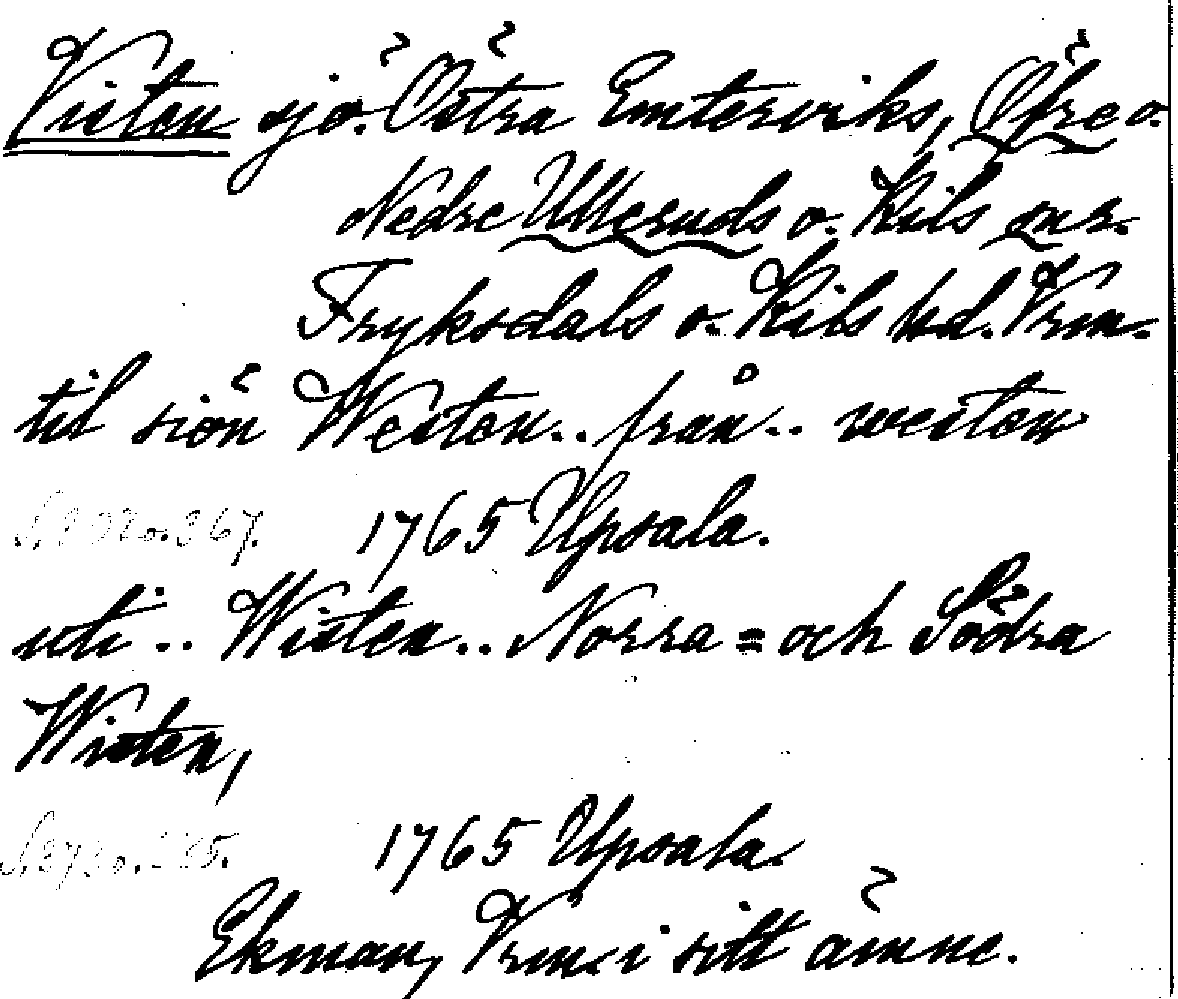 Visten sjö. Östra Emterviks, Öfre o.
Nedre Ulleruds o. Kils snr.
Fryksdals o. Kils hd. Vrm.
til siön Westen.. från.. westen
1765 Upsala.
uti.. Wisten.. Norra = och Södra
Wisten,
1765 Upsala.
Ekman, Vrm. i sitt ämne.